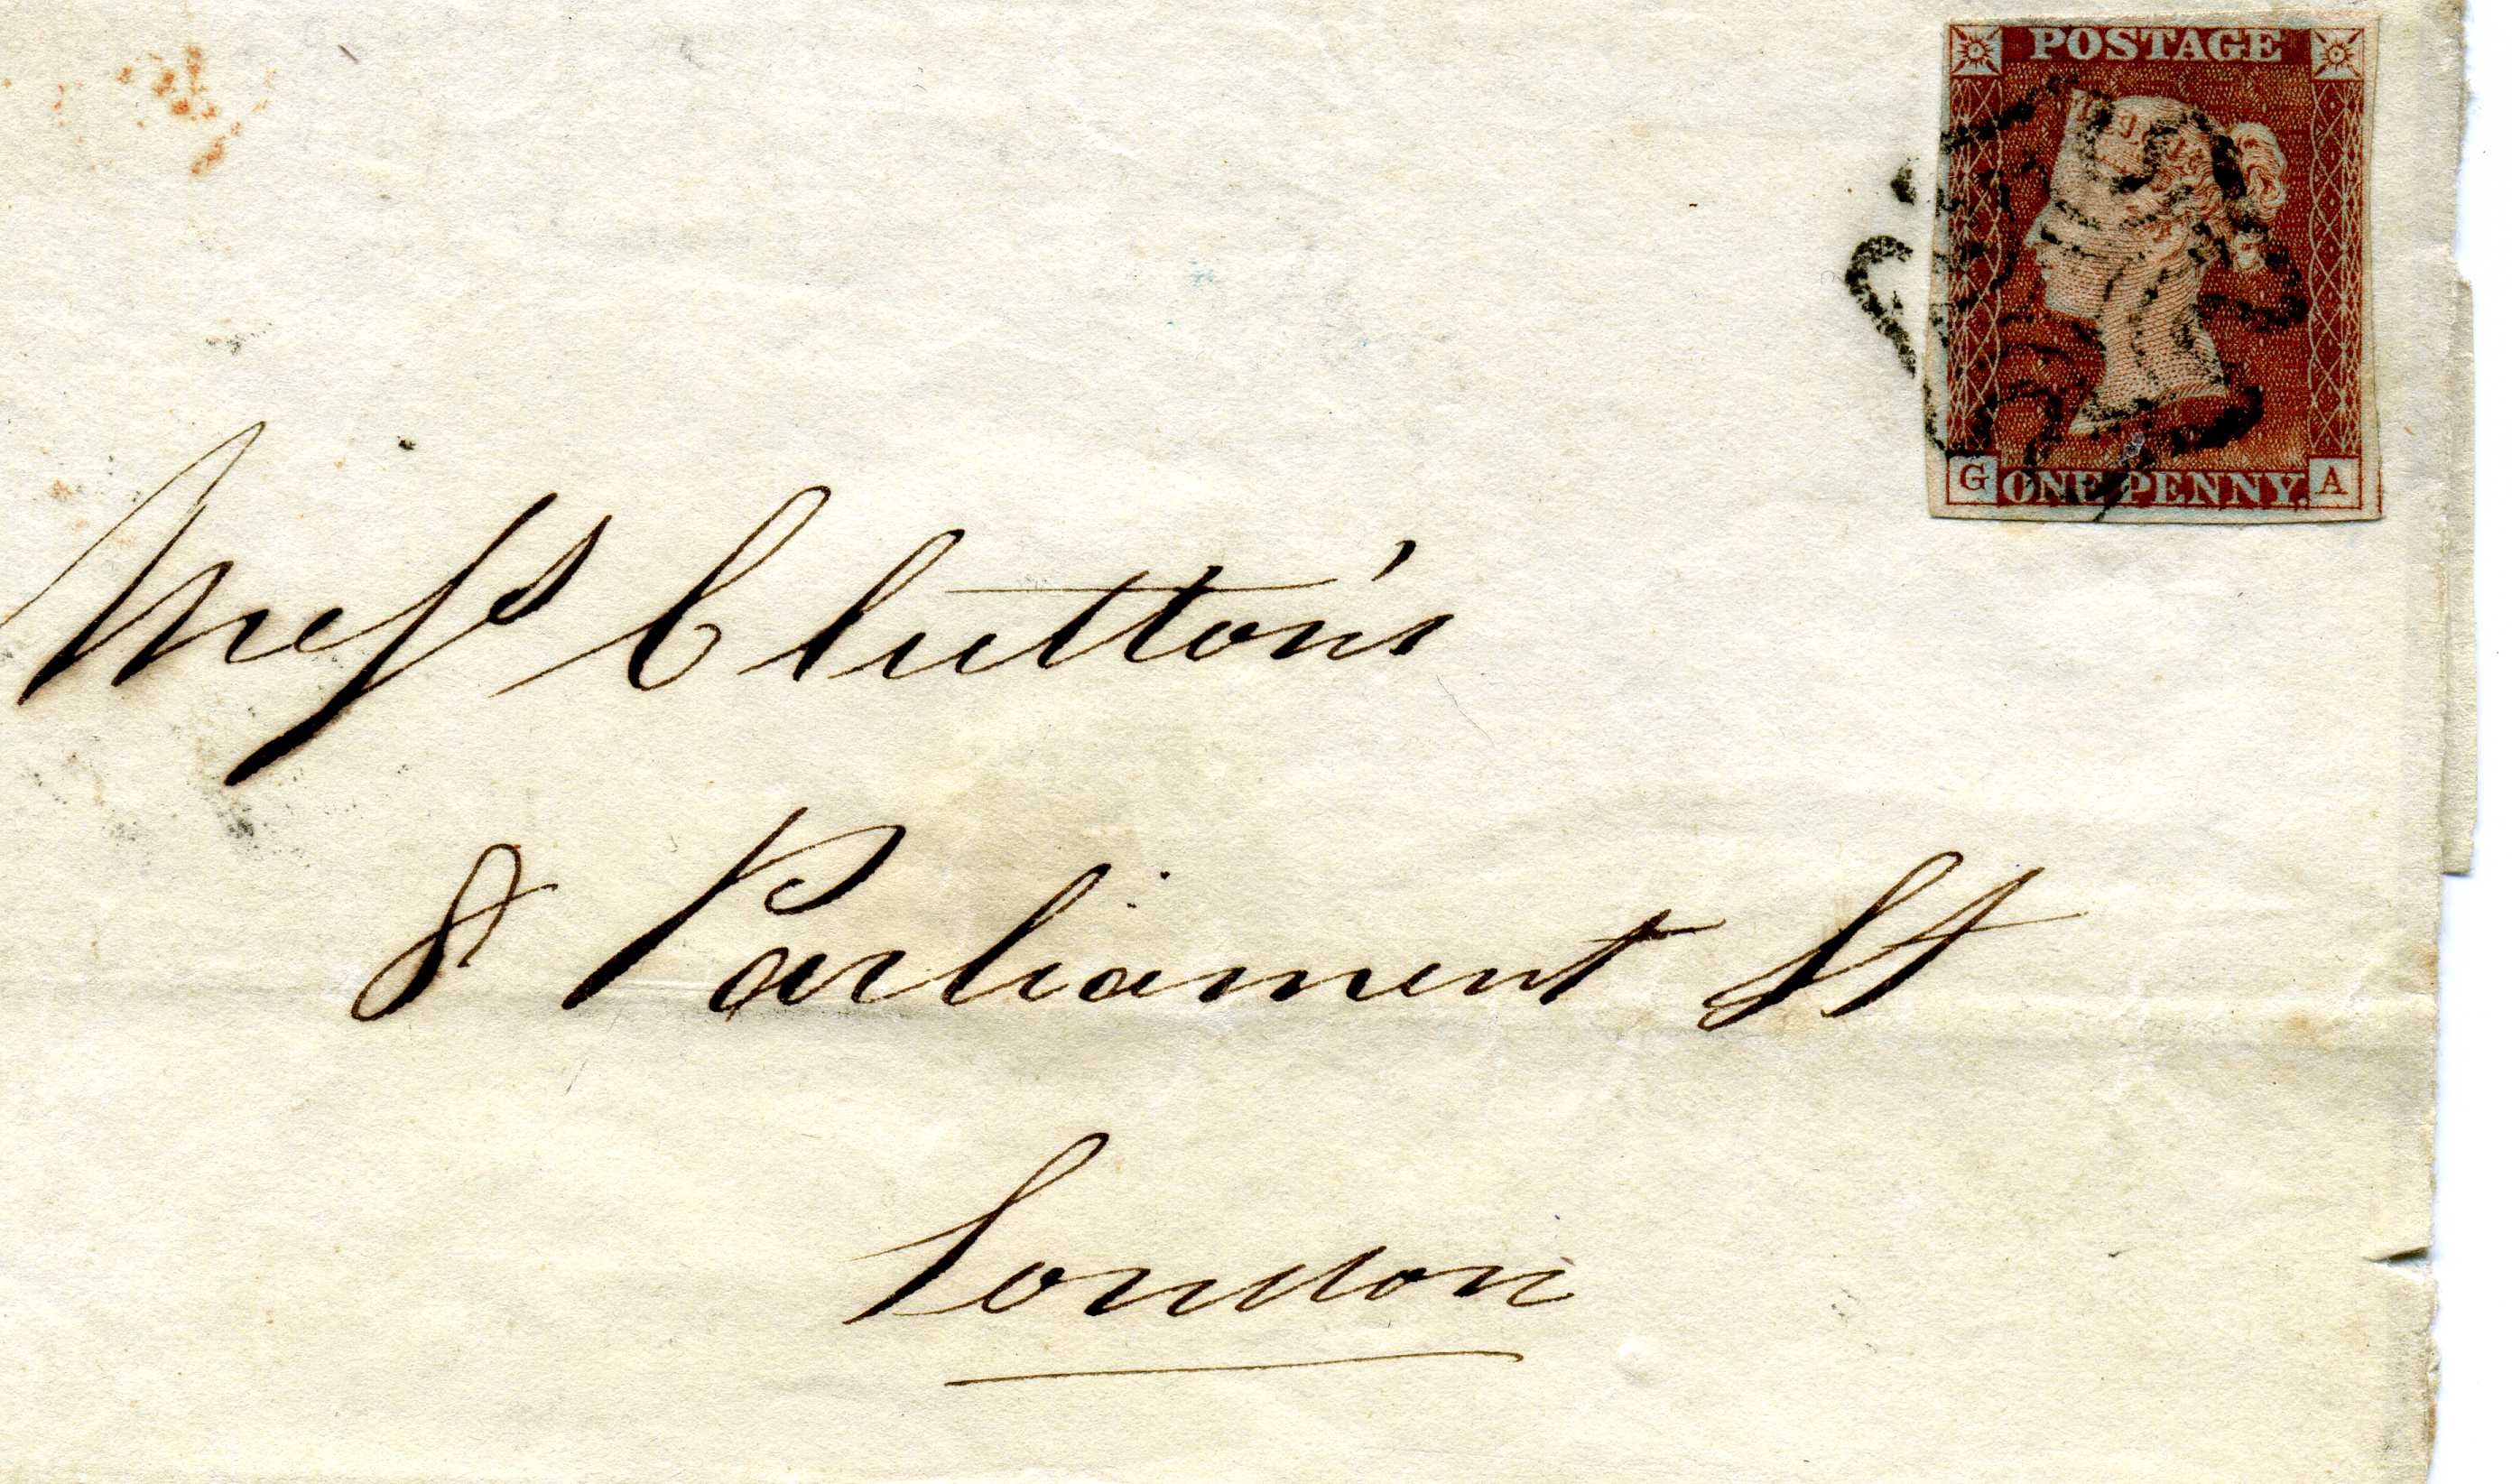 POSTAGE
G ONE PENNY. A
Mess Clutton's
8 Parliament St
London